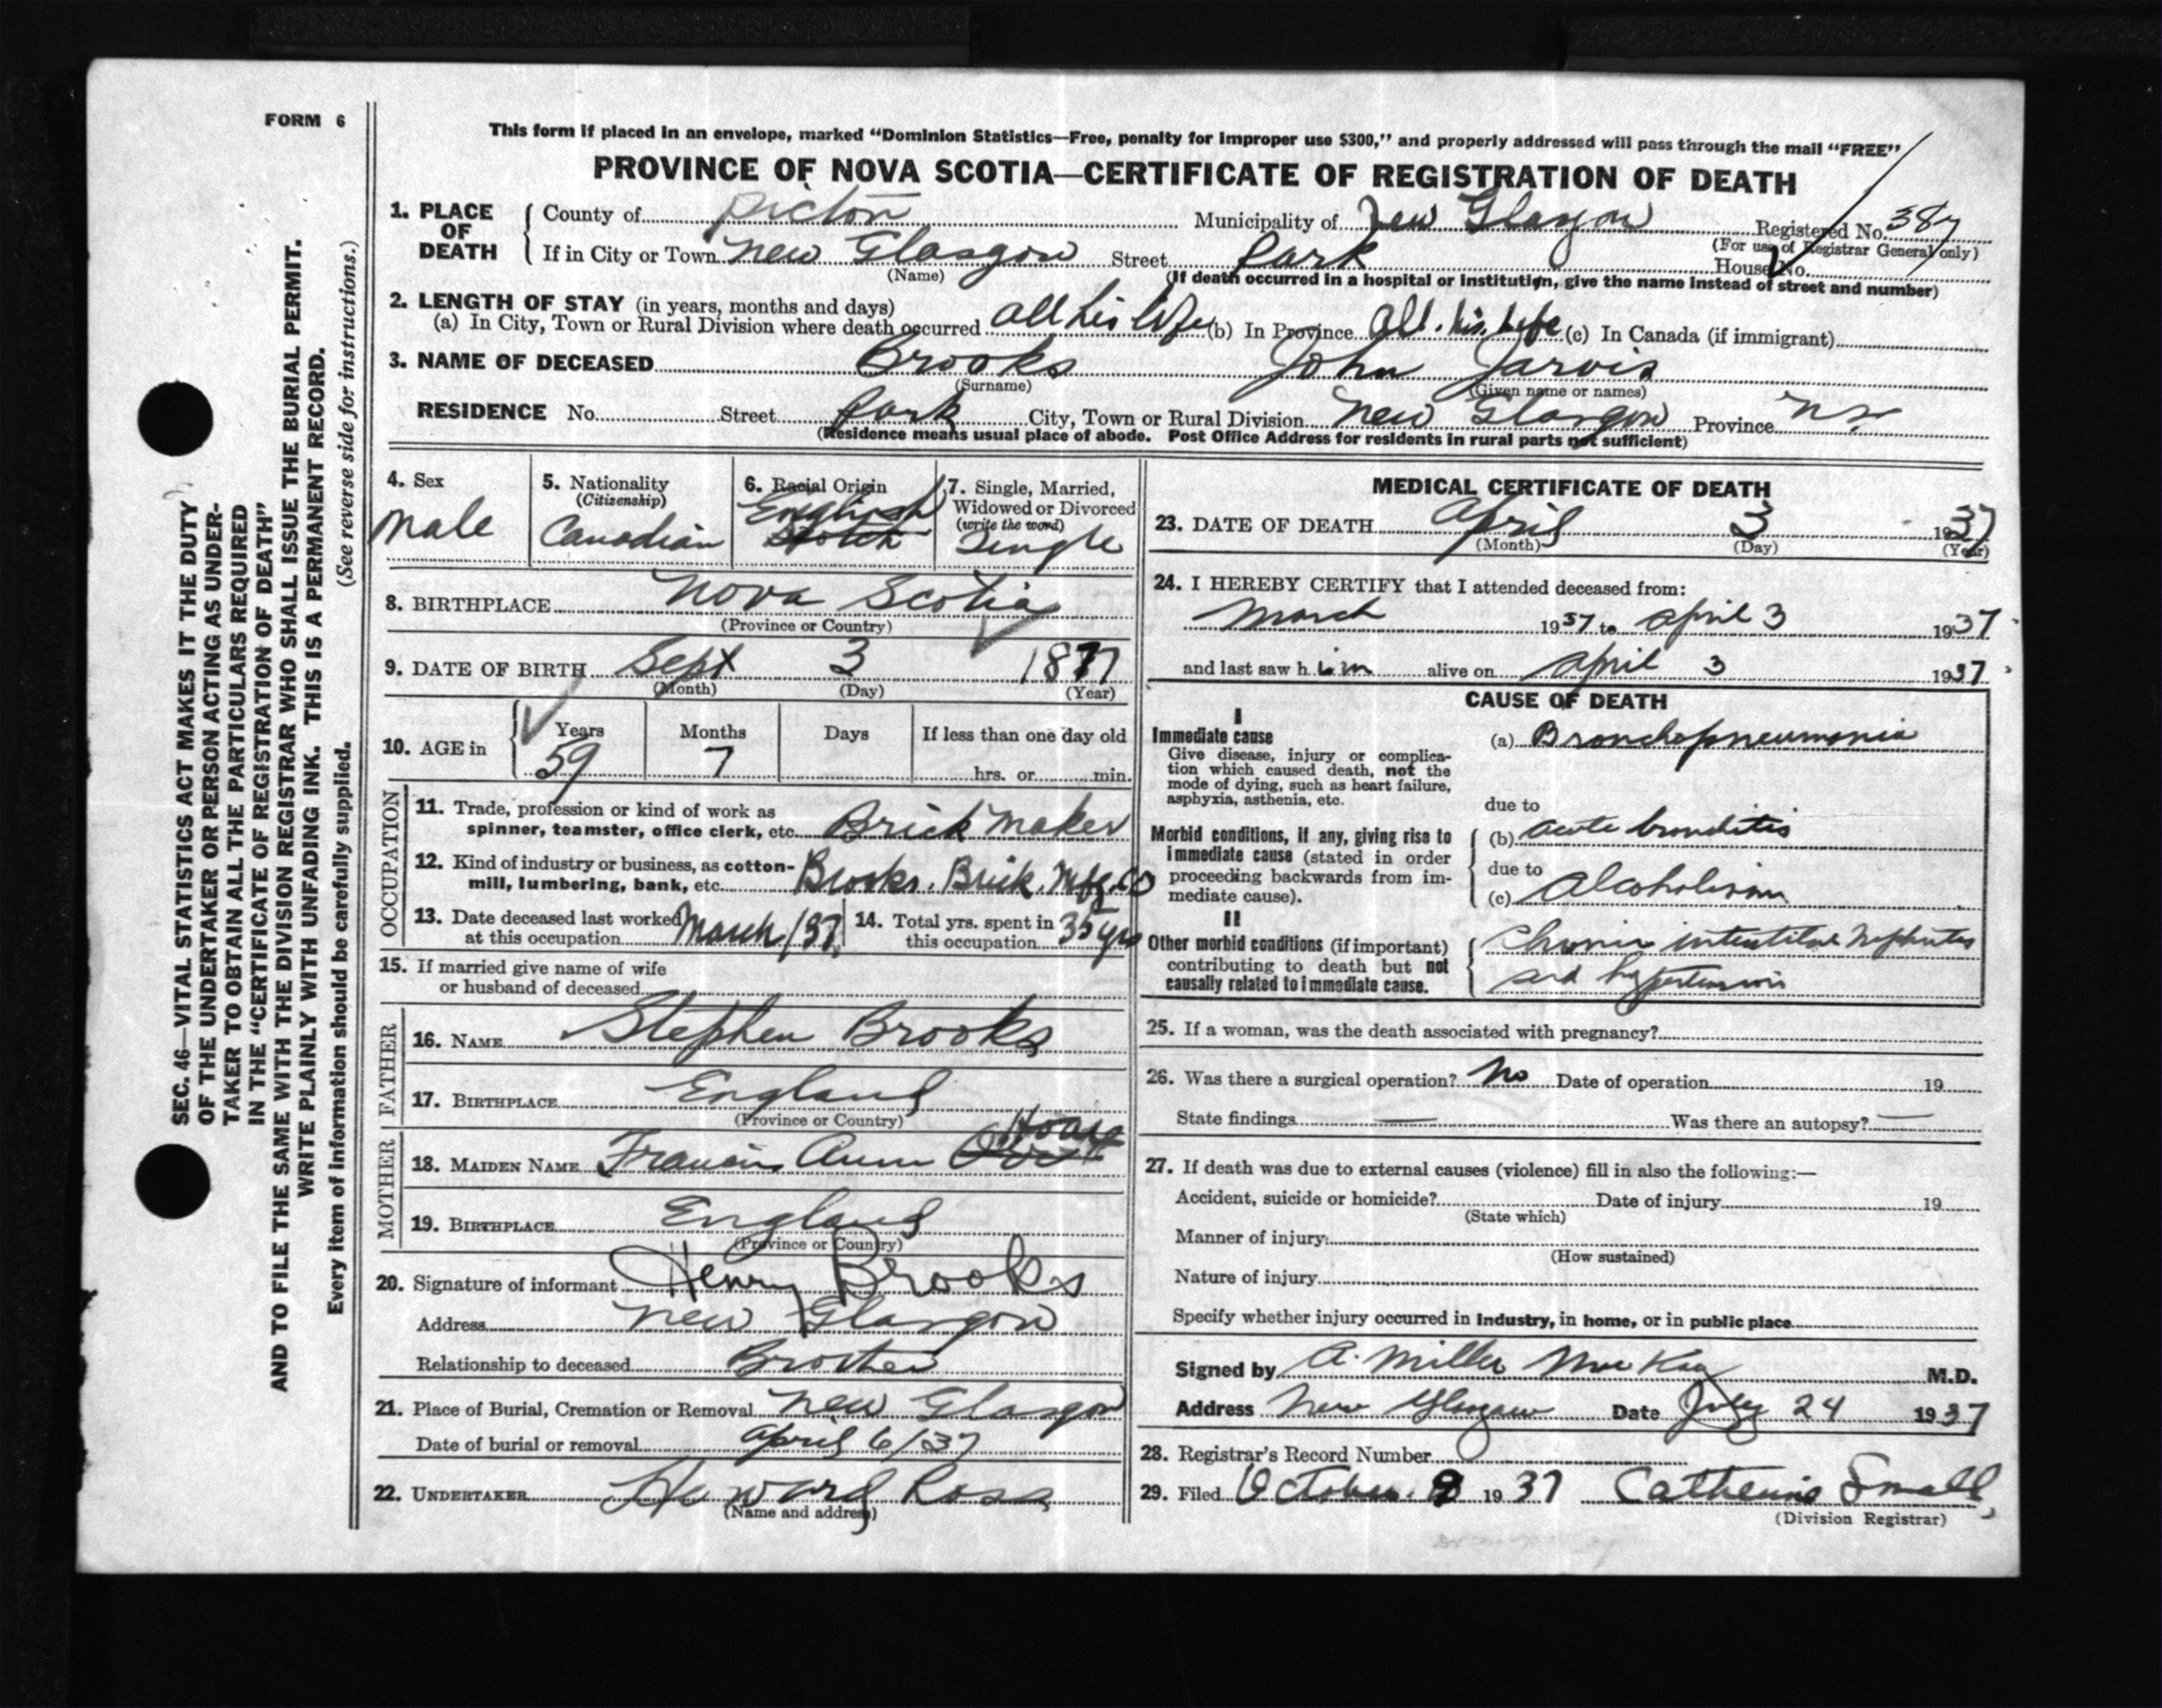 FORM 6
This form if placed in an envelope, marked “Dominion Statistics—Free, penalty for improper use $300,” and properly addressed will pass through the mail “FREE”
PROVINCE OF NOVA SCOTIA—CERTIFICATE OF REGISTRATION OF DEATH
1. PLACE OF DEATH County of Pictou Municipality of New Glasgow Registered No. 387
(For use of Registrar General only)
If in City or Town New Glasgow Street Park House No.
(Name) (If death occurred in a hospital or institution, give the name instead of street and number)
2. LENGTH OF STAY (in years, months and days)
(a) In City, Town or Rural Division where death occurred all his life (b) In Province All his life (c) In Canada (if immigrant)
3. NAME OF DECEASED Brooks John Jarvis
(Surname) (Given name or names)
RESIDENCE No. Street Park City, Town or Rural Division New Glasgow Province N.S.
(Residence means usual place of abode. Post Office Address for residents in rural parts not sufficient)
4. Sex
male
5. Nationality
(Citizenship)
Canadian
6. Racial Origin
English
Scotch
7. Single, Married,
Widowed or Divorced
(write the word)
Single
8. BIRTHPLACE Nova Scotia
(Province or Country)
9. DATE OF BIRTH Sept 3 1877
(Month) (Day) (Year)
10. AGE in Years Months Days If less than one day old
59 7 hrs. or min.
OCCUPATION
11. Trade, profession or kind of work as
spinner, teamster, office clerk, etc. Brick Maker
12. Kind of industry or business, as cotton-
mill, lumbering, bank, etc. Brooks Brick Mfg. Co
13. Date deceased last worked
at this occupation March/37
14. Total yrs. spent in
this occupation 35 yrs
15. If married give name of wife
or husband of deceased
FATHER
16. NAME Stephen Brooks
17. BIRTHPLACE England
(Province or Country)
MOTHER
Hoare
18. MAIDEN NAME Francis Ann
19. BIRTHPLACE England
(Province or Country)
20. Signature of informant Henry Brooks
Address New Glasgow
Relationship to deceased Brother
21. Place of Burial, Cremation or Removal New Glasgow
Date of burial or removal April 6/37
22. UNDERTAKER Howard Ross
(Name and address)
MEDICAL CERTIFICATE OF DEATH
23. DATE OF DEATH April 3 1937
(Month) (Day) (Year)
24. I HEREBY CERTIFY that I attended deceased from:
March 1937 to April 3 1937
and last saw him alive on April 3 1937
CAUSE OF DEATH
I
Immediate cause
Give disease, injury or complica-
tion which caused death, not the
mode of dying, such as heart failure,
asphyxia, asthenia, etc.
(a) Bronchopneumonia
due to
Morbid conditions, if any, giving rise to
immediate cause (stated in order
proceeding backwards from im-
mediate cause).
(b) acute bronchitis
due to
(c) Alcoholism
II
Other morbid conditions (if important)
contributing to death but not
causally related to immediate cause.
Chronic interstitial nephritis
and hypertension
25. If a woman, was the death associated with pregnancy?
26. Was there a surgical operation? No Date of operation 19
State findings — Was there an autopsy? —
27. If death was due to external causes (violence) fill in also the following:—
Accident, suicide or homicide? Date of injury 19
(State which)
Manner of injury
(How sustained)
Nature of injury
Specify whether injury occurred in industry, in home, or in public place
Signed by A. Miller MacKay M.D.
Address New Glasgow Date July 24 1937
28. Registrar's Record Number
29. Filed October 9 1937 Catherine Small
(Division Registrar)
SEC. 46—VITAL STATISTICS ACT MAKES IT THE DUTY
OF THE UNDERTAKER OR PERSON ACTING AS UNDER-
TAKER TO OBTAIN ALL THE PARTICULARS REQUIRED
IN THE “CERTIFICATE OF REGISTRATION OF DEATH”
AND TO FILE THE SAME WITH THE DIVISION REGISTRAR WHO SHALL ISSUE THE BURIAL PERMIT.
WRITE PLAINLY WITH UNFADING INK. THIS IS A PERMANENT RECORD.
Every item of information should be carefully supplied. (See reverse side for instructions.)